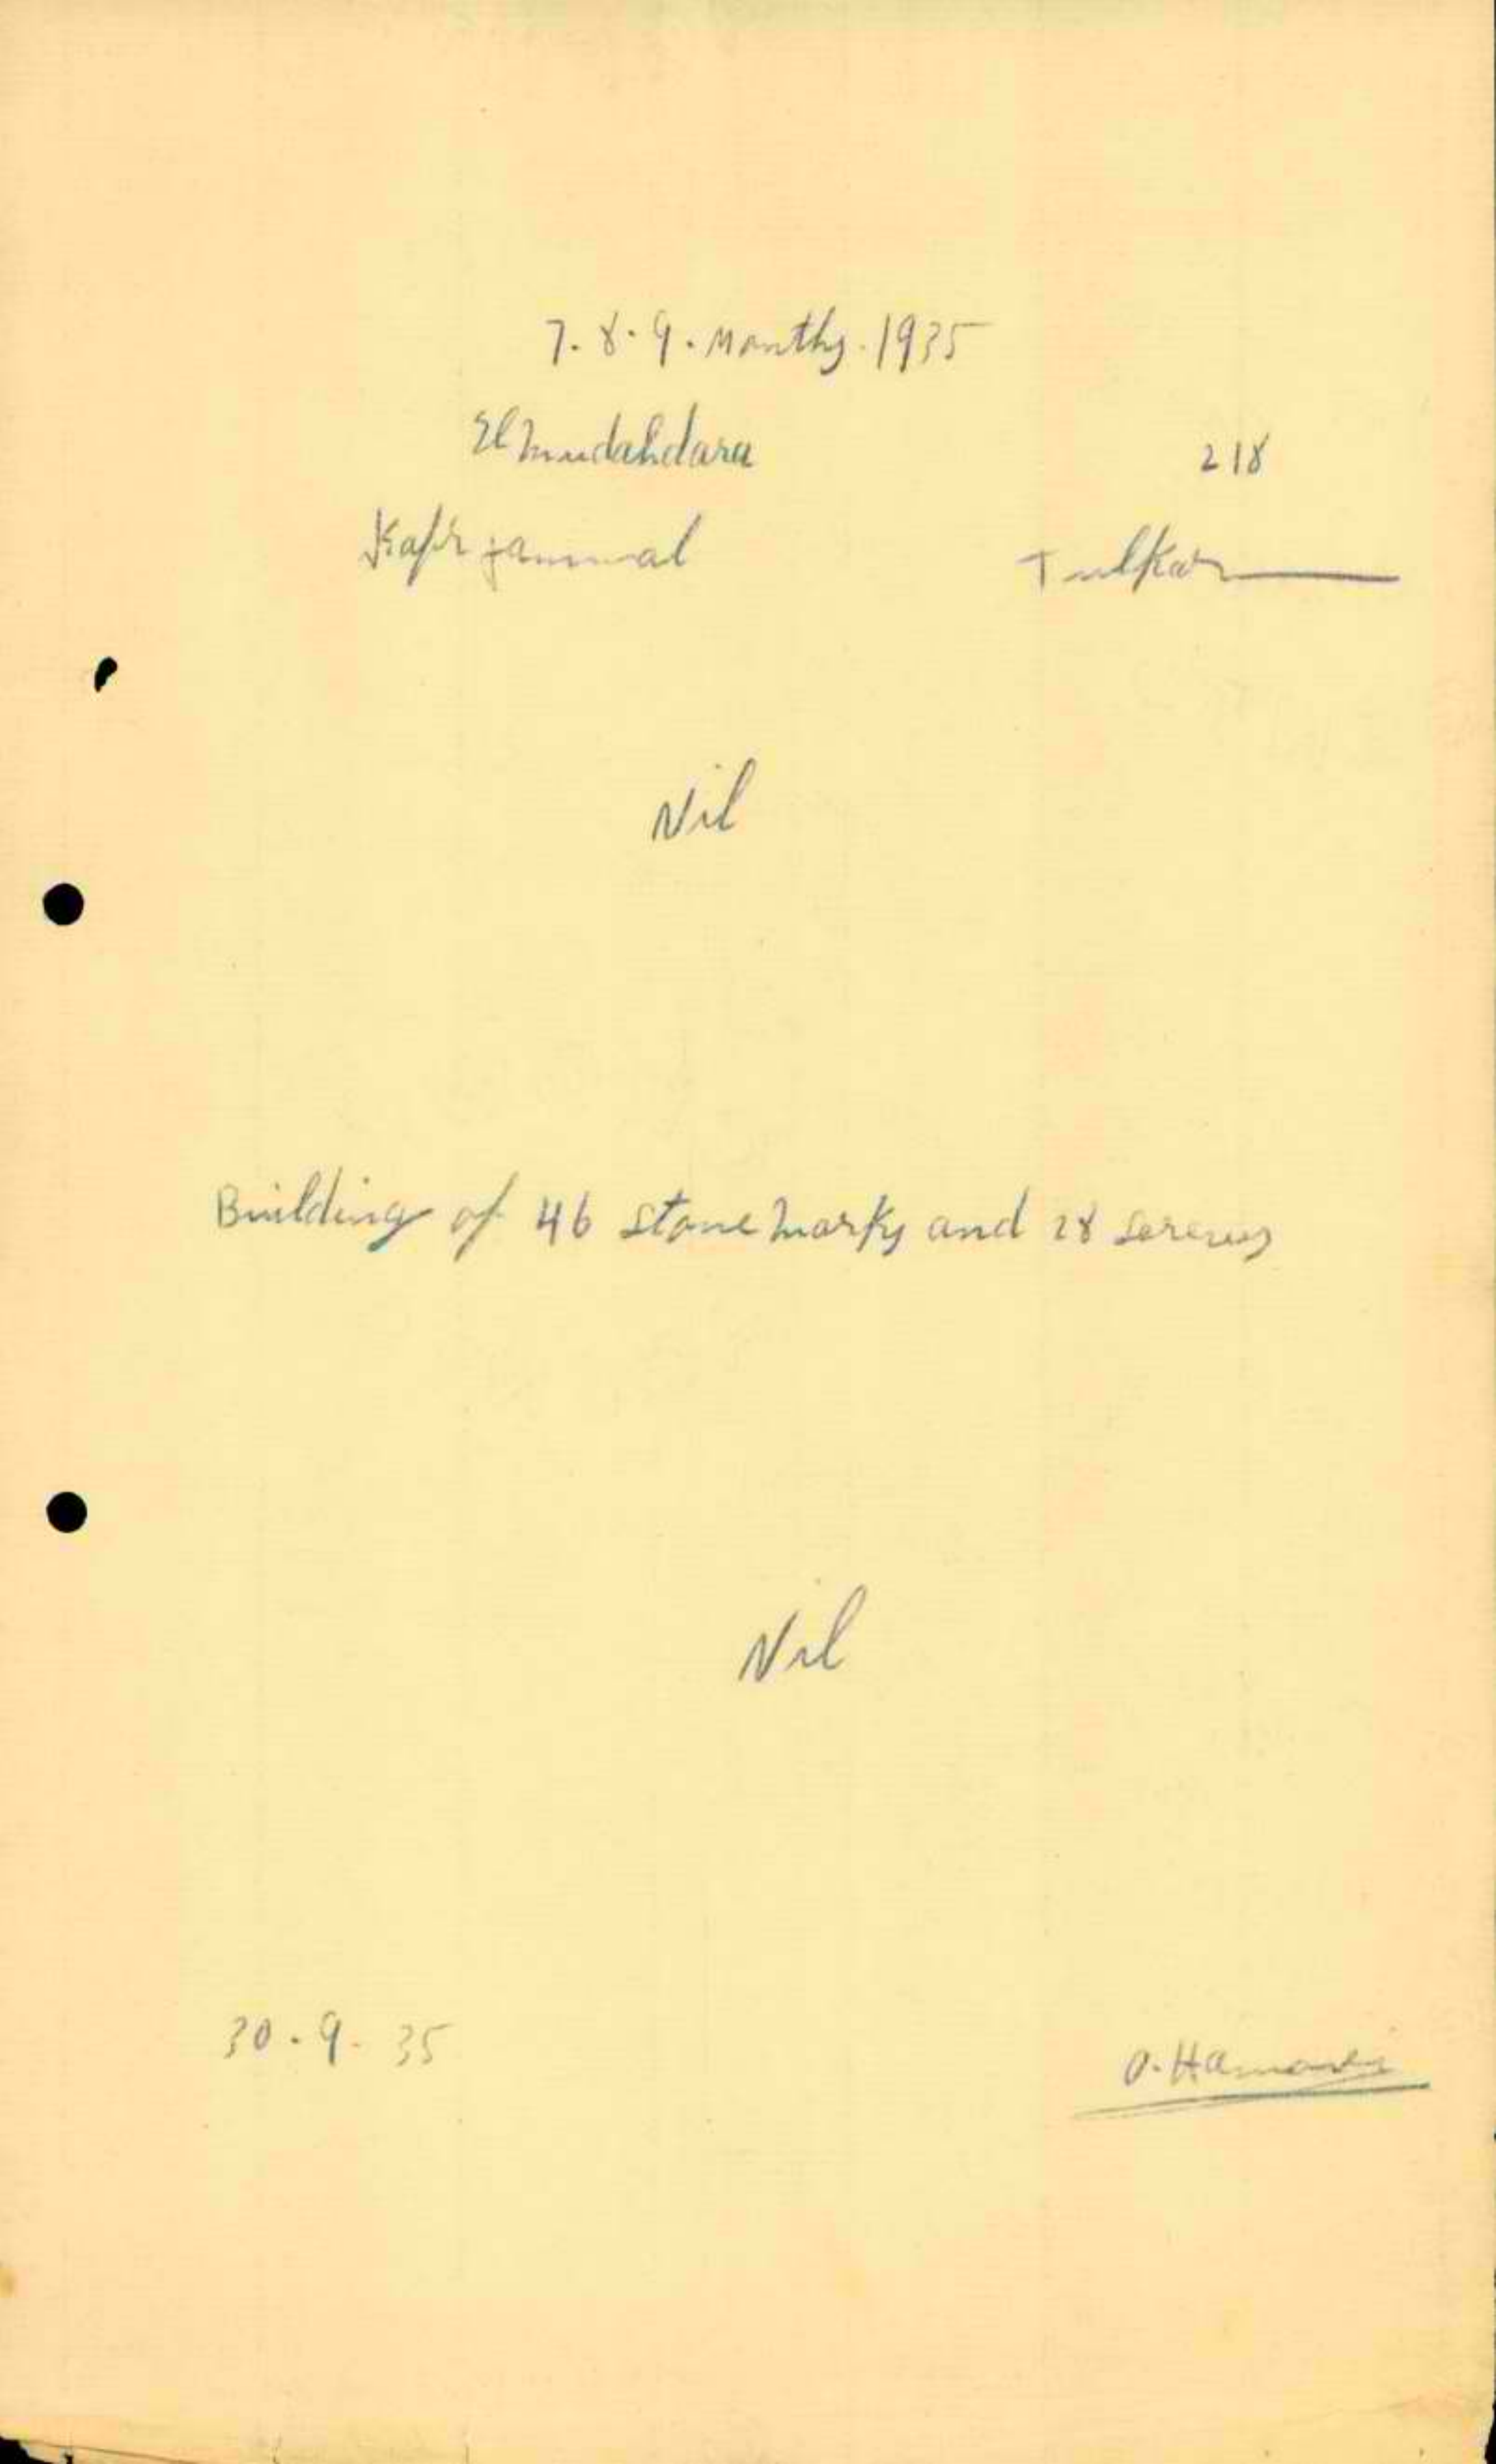 7. 8. 9. Months. 1935
El Mudahdara 218
Kafr jammal Tulkarm
Nil
Building of 46 stone marks and 28 screws
Nil
30 . 9 . 35 O. Hamawi